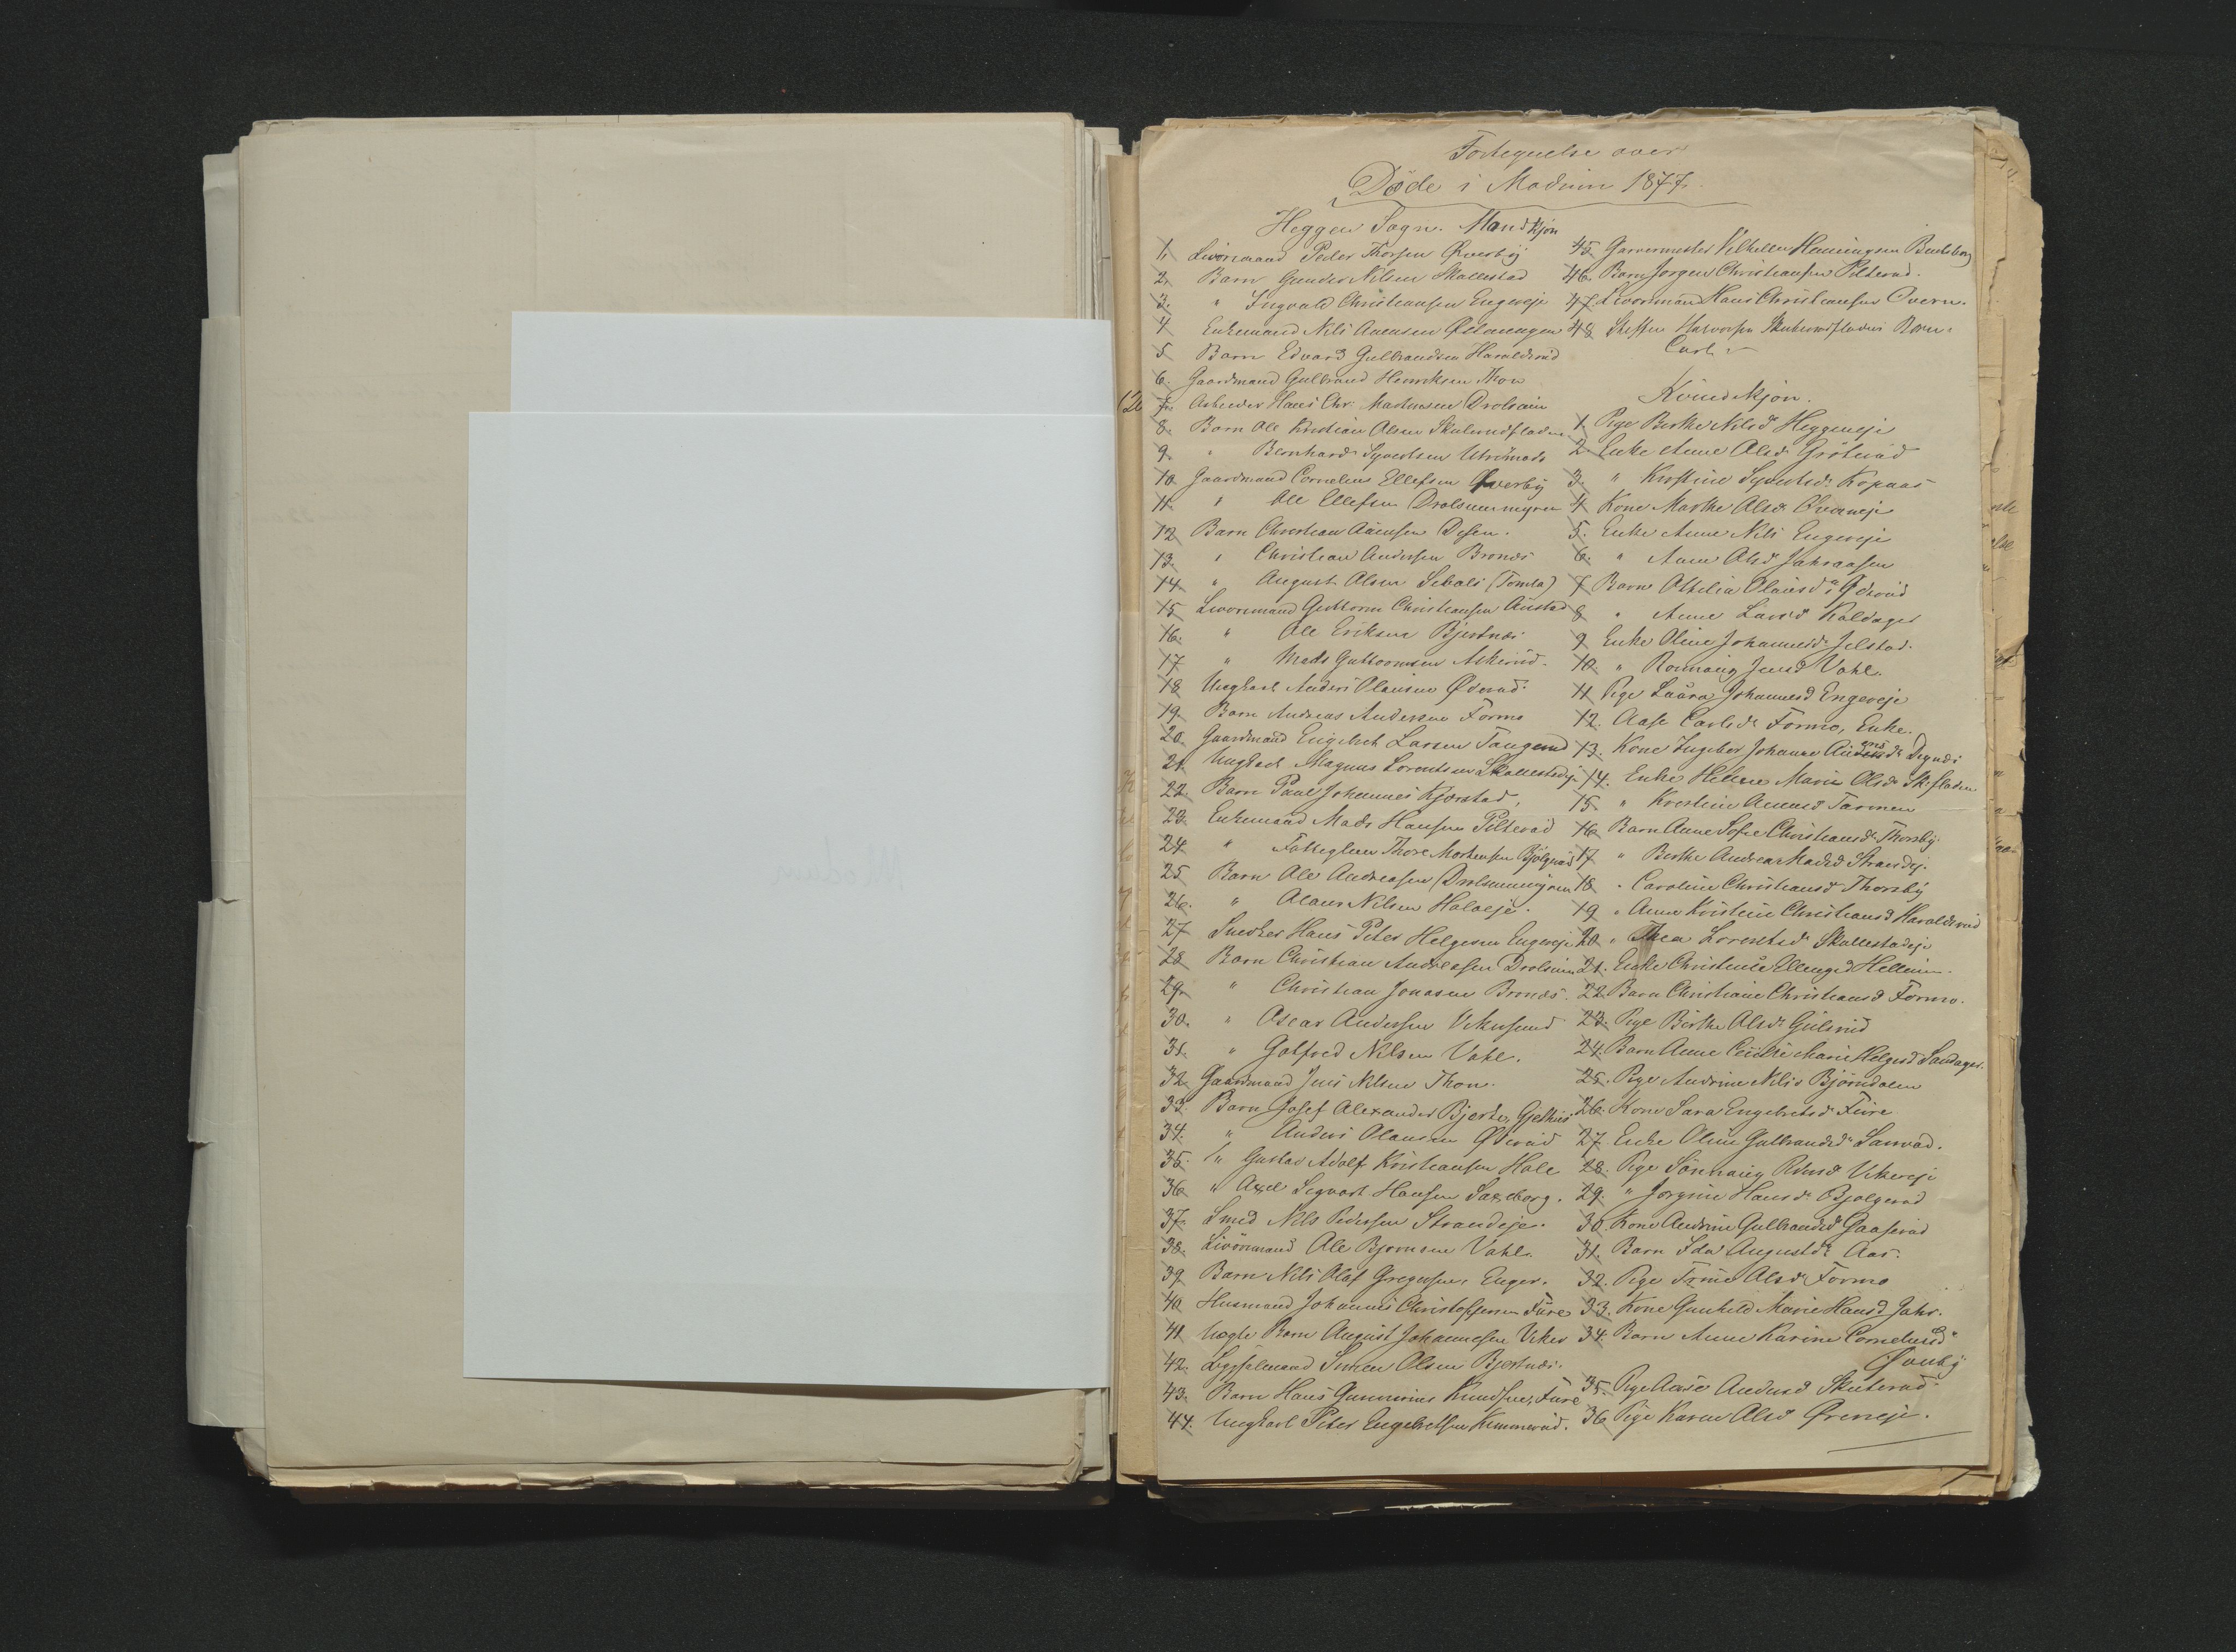 Fortegnelse over
Døde i Modum 1877.
Heggen Sogn. Mandkjøn
1. Livöremand Peder Thorsen Øverby
2. Barn Gunder Nilsen Skallestad
3. " Ingvald Christiansen Engeeje
4 Enkemand Nils Amensen
5 Barn Edvard Gulbrandsen Haraldsrud
6. Gaardmand Gulbrand Henriksen Thon
7. Arbeider Hans Chr. Martinsen Drolsum
8. Barn Ole Kristian Olsen Skuterudfladen
9. " Bernhard Syvertsen
10. Gaardmand Cornelius Ellefsen Øverby
11. " Ole Ellefsen Drolsummyren
12 Barn Christian Aamsen Desen.
13. " Christian Andersen Bronæs
14. " August Olsen Sibali (Tomta)
15 Livoremand Guttorm Christiansen Austad
16. " Ole Eriksen Bjertnæs
17 " Mads Guttormsen Askerud.
18 Ungkarl Anders Olausen Øderud.
19. Barn Andreas Andersen Formo
20. Gaardmand Engebret Larsen Tangerud
21. Ungkarl Magnus Lorentsen Skallestadeje
22. Barn Paul Johannes Kjørstad,
23. Enkemand Mads Hansen Pilterud
24. " Fattiglem Thore Mortensen Bjølgerud
25 Barn Ole Andreasen Drolsummyren
26. " Olaus Nilsen Haleeje.
27 Snedker Hans Peter Helgesen Engeeje
28 Barn Christian Andreasen Drolsum
29. " Christian Jonasen Bronæs.
30. " Oscar Andersen Vikersund
31. " Gotfred Nilsen Vahl.
32 Gaardmand Jens Nilsen Thon.
33. Barn Josef Alexander Bjerke, Gjethus
34. " Anders Olausen Øderud
35. " Gustav Adolf Kristiansen Hole
36 " Axel Segvart Hansen Saxeborg.
37. Smed Nils Pedersen Strandeje.
38. Livöremand Ole Bjornsen Vahl.
39 Barn Nils Olaf Gregersen, Enger.
40 Husmand Johannes Christoffersen Fure
41 Uægte Barn August Johannesen Viker
42. Simen Olsen Bjertnæs.
43. Barn Hans Gunerius Knudsen, Fure
44. Ungkarl Peter Engebretsen Kimmerud.
45. Garvermester Vilhelm Henningsen
46. Barn Jorgen Christiansen Pilterud.
47. Livoremand Hans Christiansen Overn.
48 Steffen Halvorsen Skuterudfladens Barn:
Carl
Kvindekjøn.
1. Pige Berthe Nilsd. Heggeneje
2. Enke Anne Olsd.
3. " Kirstine Syvertsd. Kopaas
4 Kone Marthe Olsd. Overneje
5. Enke Anne Nils Engeeje
6. " Anne Olsd. Jahraasen
7 Barn Othelia Olausd. Øderud
8 " Anne Larsd. Kaldager
9 Enke Oline Johannesd. Jelstad.
10. " Ronnaug Jensd. Vahl.
11 Pige Laura Johannesd Engereje
12. Aase Carlsd. Formo, Enke.
13. Kone Ingebor Johanne d. Degnæs
14. Enke Helene Marie Olsd. Sk.fladen
15. " Kirstine Amund
16. Barn Anne Sofie Christiansd. Thorsby.
17 " Berthe Andrea Madsd Strandej.
18 " Caroline Christiansd Thorsby
19 " Anne Kristine Christiansd Haraldsrud
20. " Thea Lorentsd. Skallestadeje
21. Enke Christense Ellingsd Hellum.
22. Barn Christiane Christiansd Formo.
23. Pige Birthe Olsd. Gulsrud
24. Barn Anne Cecilie Marie Helgesd Sandager.
25. Pige Andrine Nils. Bjørndalen
26. Kone Sara Engebretsd. Fure
27. Enke Oline Gulbrandsd.
28. Pige Vikereje
29. " Jorgine Hansd. Bjølgerud
30. Kone Andrine Gulbrandsd. Gaaserud
31. Barn Ida Augustd. Aas.
32. Pige Trine Olsd. Formo
33. Kone Gunhild Marie Hansd Jahr.
34. Barn Anne Karine Corneliusd.
Øverby
35. Pige Aase Andersd Skuterud.
36 Pige Karen Olsd Ørneeje.